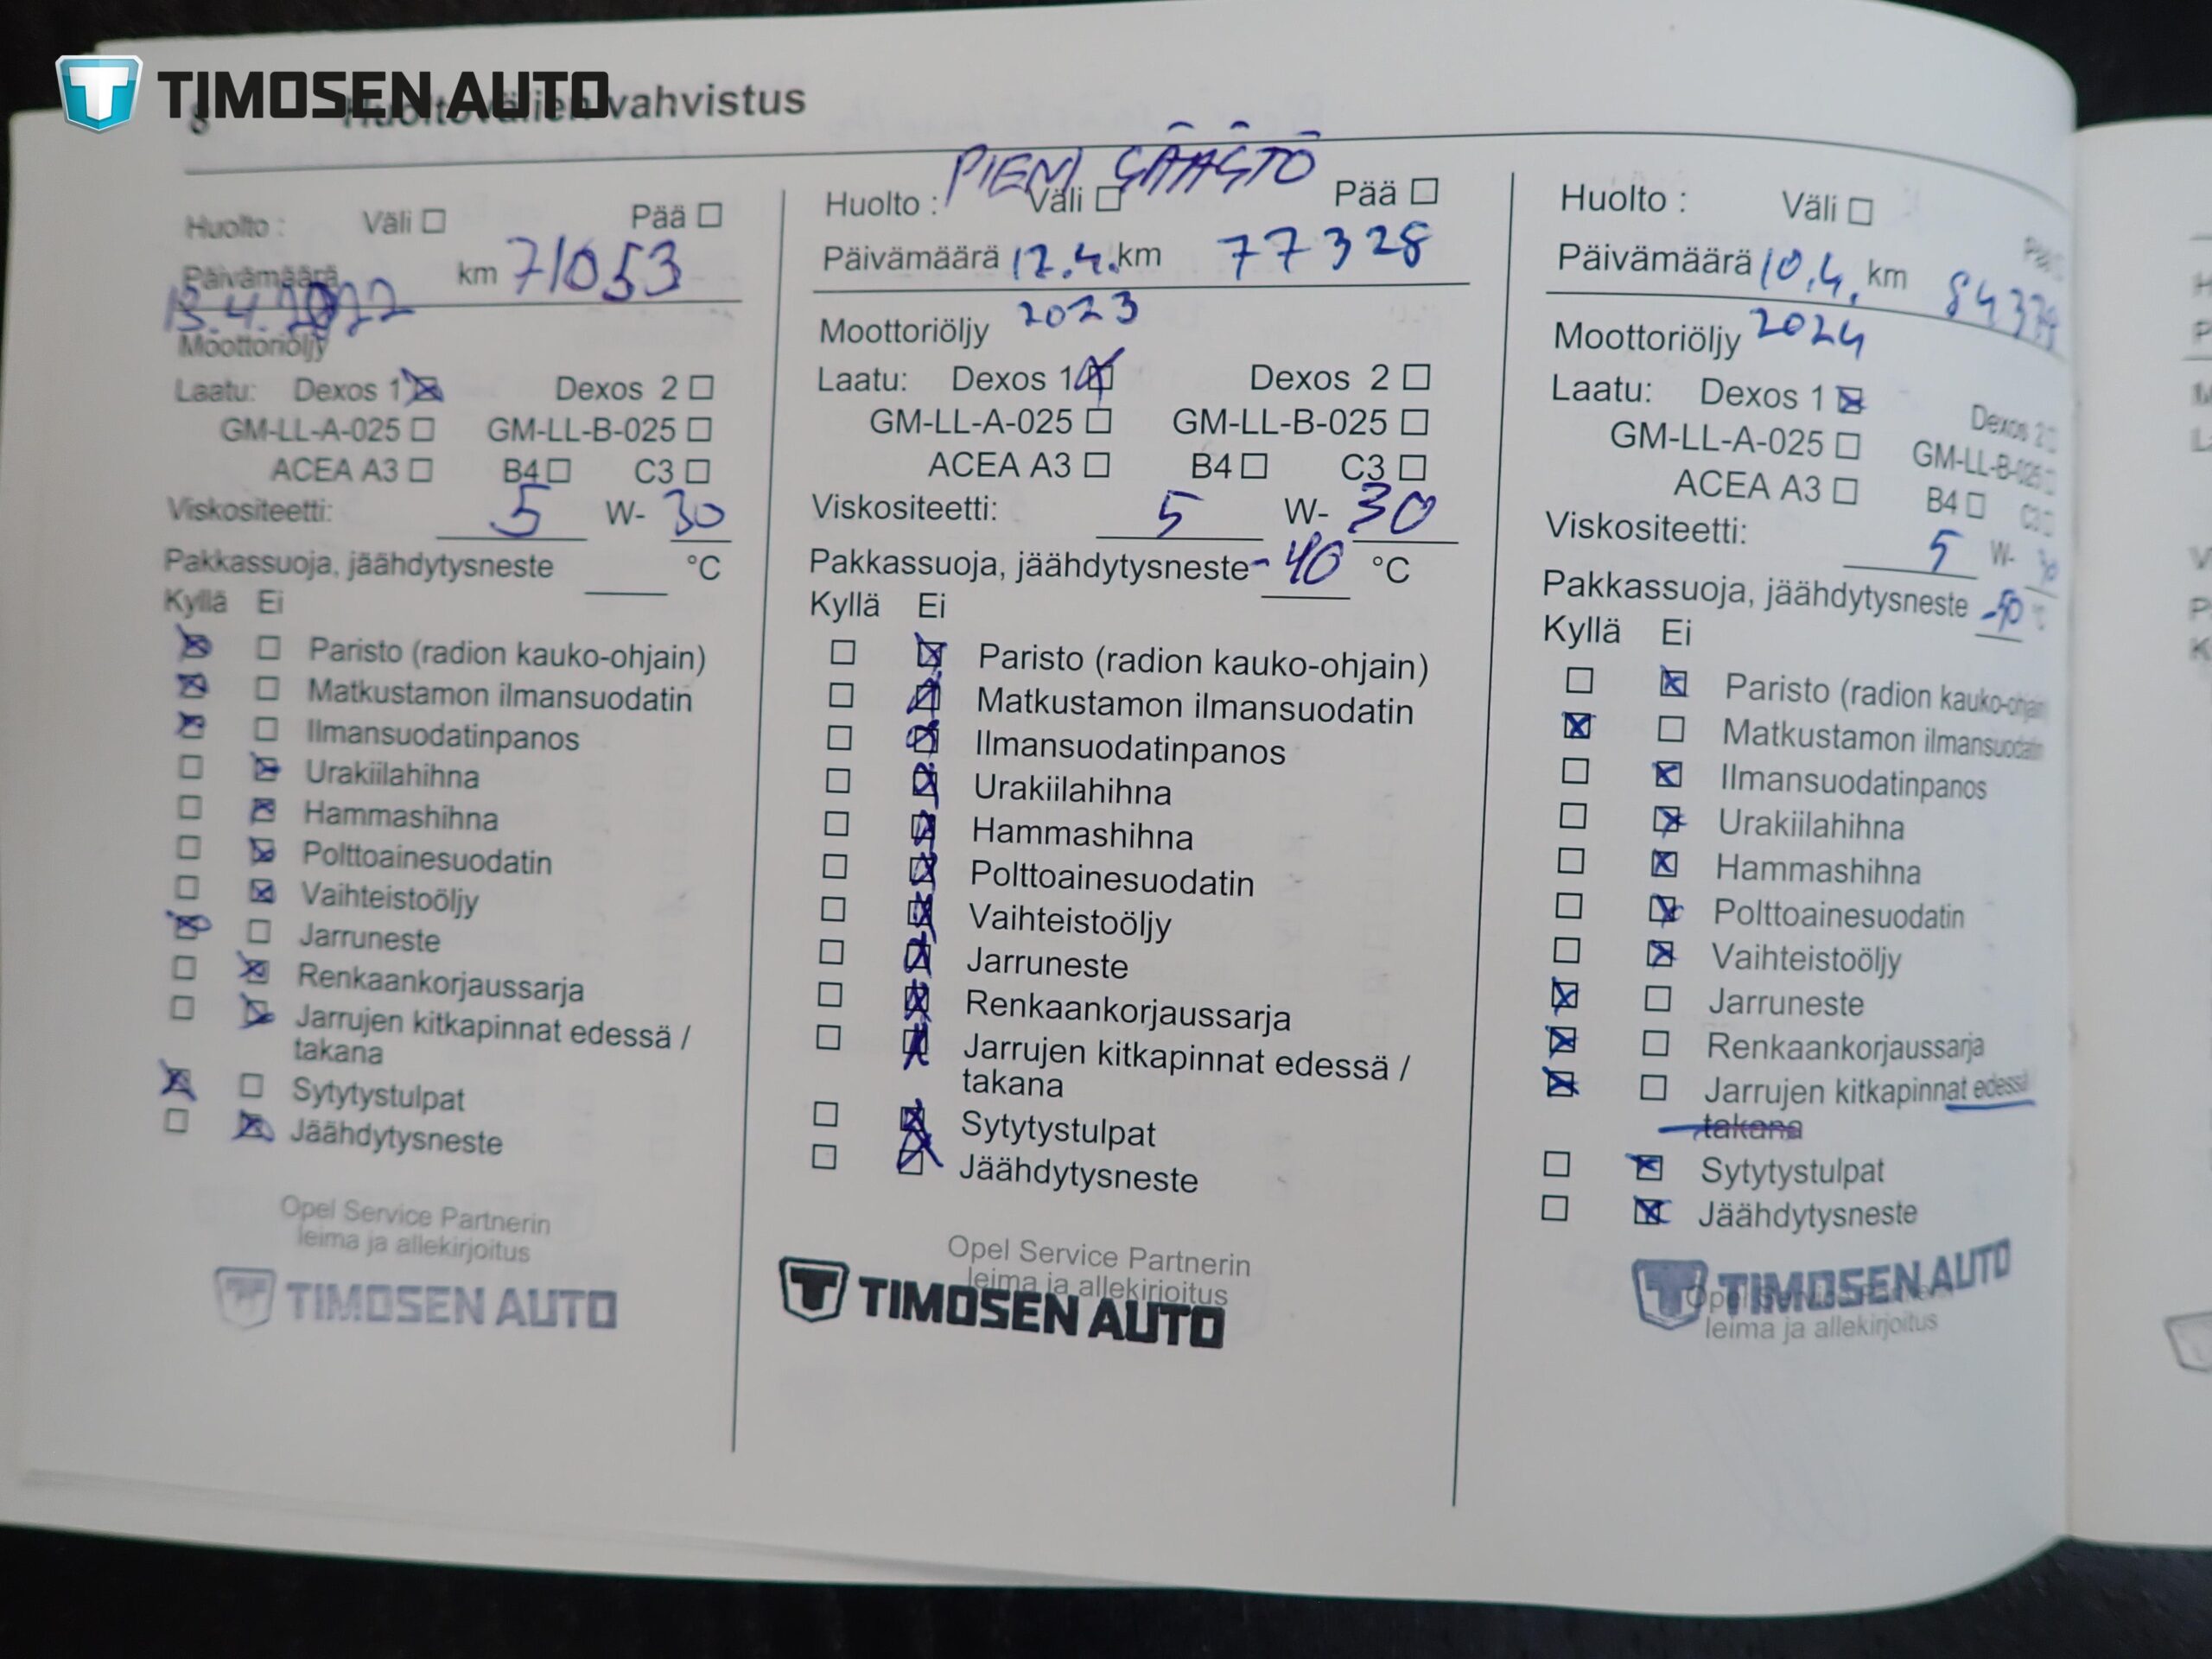 TIMOSEN AUTO
8 Huoltovälien vahvistus
Huolto : Väli ☐ Pää ☐
Päivämäärä km 71053
13.4.2022
Moottoriöljy
Laatu: Dexos 1 ☒ Dexos 2 ☐
GM-LL-A-025 ☐ GM-LL-B-025 ☐
ACEA A3 ☐ B4 ☐ C3 ☐
Viskositeetti: 5 W- 30
Pakkassuoja, jäähdytysneste °C
Kyllä Ei
☒ ☐ Paristo (radion kauko-ohjain)
☒ ☐ Matkustamon ilmansuodatin
☒ ☐ Ilmansuodatinpanos
☐ ☒ Urakiilahihna
☐ ☒ Hammashihna
☐ ☒ Polttoainesuodatin
☐ ☒ Vaihteistoöljy
☒ ☐ Jarruneste
☐ ☒ Renkaankorjaussarja
☐ ☒ Jarrujen kitkapinnat edessä /
takana
☒ ☐ Sytytystulpat
☐ ☒ Jäähdytysneste
Opel Service Partnerin
leima ja allekirjoitus
TIMOSEN AUTO
PIENI SÄÄSTÖ
Huolto : Väli ☐ Pää ☐
Päivämäärä 12.4. km 77328
2023
Moottoriöljy
Laatu: Dexos 1 ☒ Dexos 2 ☐
GM-LL-A-025 ☐ GM-LL-B-025 ☐
ACEA A3 ☐ B4 ☐ C3 ☐
Viskositeetti: 5 W- 30
Pakkassuoja, jäähdytysneste -40 °C
Kyllä Ei
☐ ☒ Paristo (radion kauko-ohjain)
☐ ☒ Matkustamon ilmansuodatin
☐ ☒ Ilmansuodatinpanos
☐ ☒ Urakiilahihna
☐ ☒ Hammashihna
☐ ☒ Polttoainesuodatin
☐ ☒ Vaihteistoöljy
☐ ☒ Jarruneste
☐ ☒ Renkaankorjaussarja
☐ ☒ Jarrujen kitkapinnat edessä /
takana
☐ ☒ Sytytystulpat
☐ ☒ Jäähdytysneste
Opel Service Partnerin
leima ja allekirjoitus
TIMOSEN AUTO
Huolto : Väli ☐
Päivämäärä 10.4. km
2024
Moottoriöljy
Laatu: Dexos 1 ☒ Dexos 2 ☐
GM-LL-A-025 ☐ GM-LL-B-025 ☐
ACEA A3 ☐ B4 ☐ C3 ☐
Viskositeetti: 5 W- 30
Pakkassuoja, jäähdytysneste °C
Kyllä Ei
☐ ☒ Paristo (radion kauko-ohjain
☒ ☐ Matkustamon ilmansuodatin
☐ ☒ Ilmansuodatinpanos
☐ ☒ Urakiilahihna
☐ ☒ Hammashihna
☐ ☒ Polttoainesuodatin
☐ ☒ Vaihteistoöljy
☒ ☐ Jarruneste
☒ ☐ Renkaankorjaussarja
☒ ☐ Jarrujen kitkapinnat edessä
takana
☐ ☒ Sytytystulpat
☐ ☒ Jäähdytysneste
TIMOSEN AUTO
Opel Service Partnerin
leima ja allekirjoitus